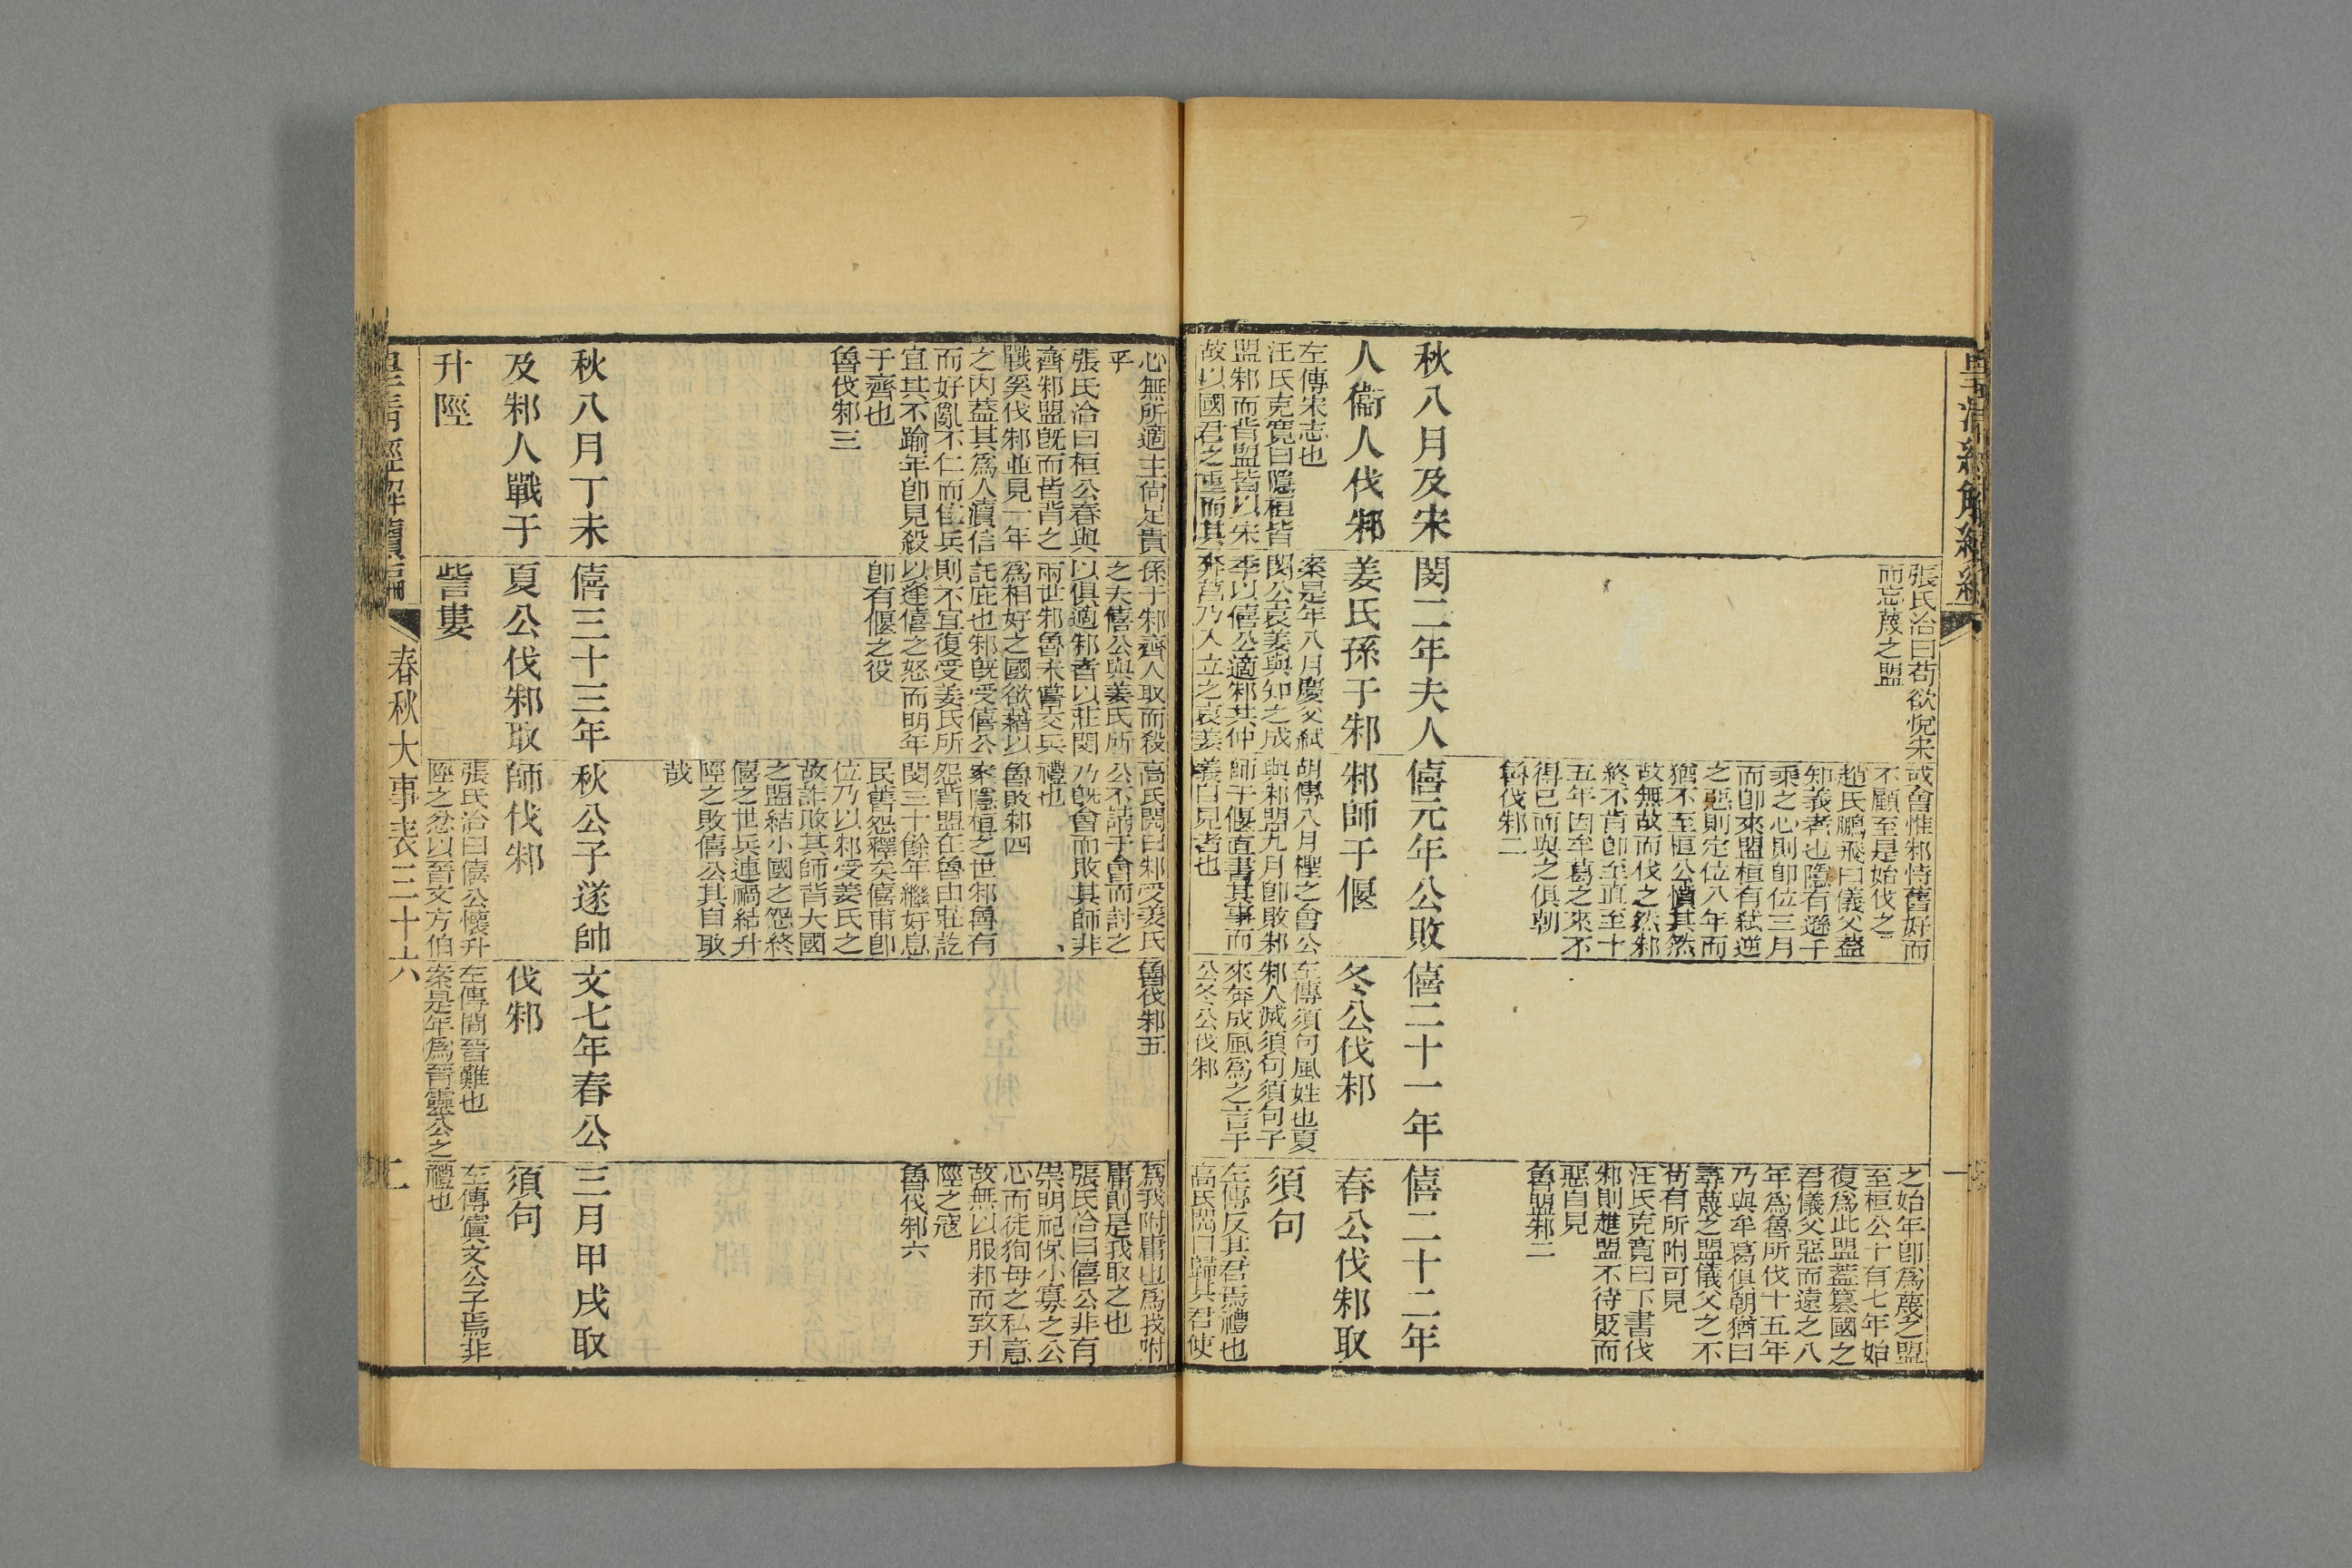 皇清經解續編
秋八月及宋
人衞人伐邾
左傳宋志也
汪氏克寬曰隱桓皆
盟邾而背盟皆以宋
故以國君之重而其
張氏洽曰苟欲悅宋
而忘蔑之盟
閔二年夫人
姜氏孫于邾
案是年八月慶父弒
閔公哀姜與知之成
季以僖公適邾共仲
奔莒乃入立之哀姜
或會惟邾恃舊好而
不顧至是始伐之
趙氏鵬飛曰儀父蓋
知義者也隱有遜千
乘之心則卽位三月
而卽來盟桓有弒逆
之惡則定位八年而
猶不至桓公憤其然
故無故而伐之然邾
終不肯卽至直至十
五年因牟葛之來不
得已而與之俱朝
魯伐邾二
僖元年公敗
邾師于偃
胡傳八月檉之會公
與邾盟九月卽敗邾
師于偃直書其事而
義自見者也
僖二十一年
冬公伐邾
左傳須句風姓也夏
邾人滅須句須句子
來奔成風爲之言于
公冬公伐邾
之始年卽爲蔑之盟
至桓公十有七年始
復爲此盟蓋簒國之
君儀父惡而遠之八
年爲魯所伐十五年
乃與牟葛俱朝猶曰
尋蔑之盟儀父之不
苟有所附可見
汪氏克寬曰下書伐
邾則趡盟不待貶而
惡自見
魯盟邾二
僖二十二年
春公伐邾取
須句
左傳反其君焉禮也
高氏閌曰歸其君使
心無所適主尚足貴
乎
張氏洽曰桓公春與
齊邾盟旣而皆背之
戰奚伐邾並見一年
之內蓋其爲人瀆信
而好亂不仁而佳兵
宜其不踰年卽見殺
于齊也
魯伐邾三
秋八月丁未
及邾人戰于
升陘
孫于邾齊人取而殺
之夫僖公與姜氏所
以俱適邾者以莊閔
兩世邾魯未嘗交兵
爲相好之國欲藉以
託庇也邾旣受僖公
則不宜復受姜氏所
以逢僖之怒而明年
卽有偃之役
僖三十三年
夏公伐邾取
訾婁
高氏閌曰邾受姜氏
公不請于會而討之
乃旣會而敗其師非
禮也
魯敗邾四
案隱桓之世邾魯有
怨背盟在魯由莊訖
閔三十餘年繼好息
民舊怨釋矣僖甫卽
位乃以邾受姜氏之
故詐敗其師背大國
之盟結小國之怨終
僖之世兵連禍結升
陘之敗僖公其自取
哉
秋公子遂帥
師伐邾
張氏洽曰僖公懷升
陘之忿以晉文方伯
魯伐邾五
文七年春公
伐邾
左傳間晉難也
案是年爲晉靈公之
爲我附庸也爲我附
庸則是我取之也
張氏洽曰僖公非有
崇明祀保小寡之公
心而徒狥母之私意
故無以服邾而致升
陘之寇
魯伐邾六
三月甲戌取
須句
左傳寘文公子焉非
禮也
皇清經解續編
春秋大事表三十六
二